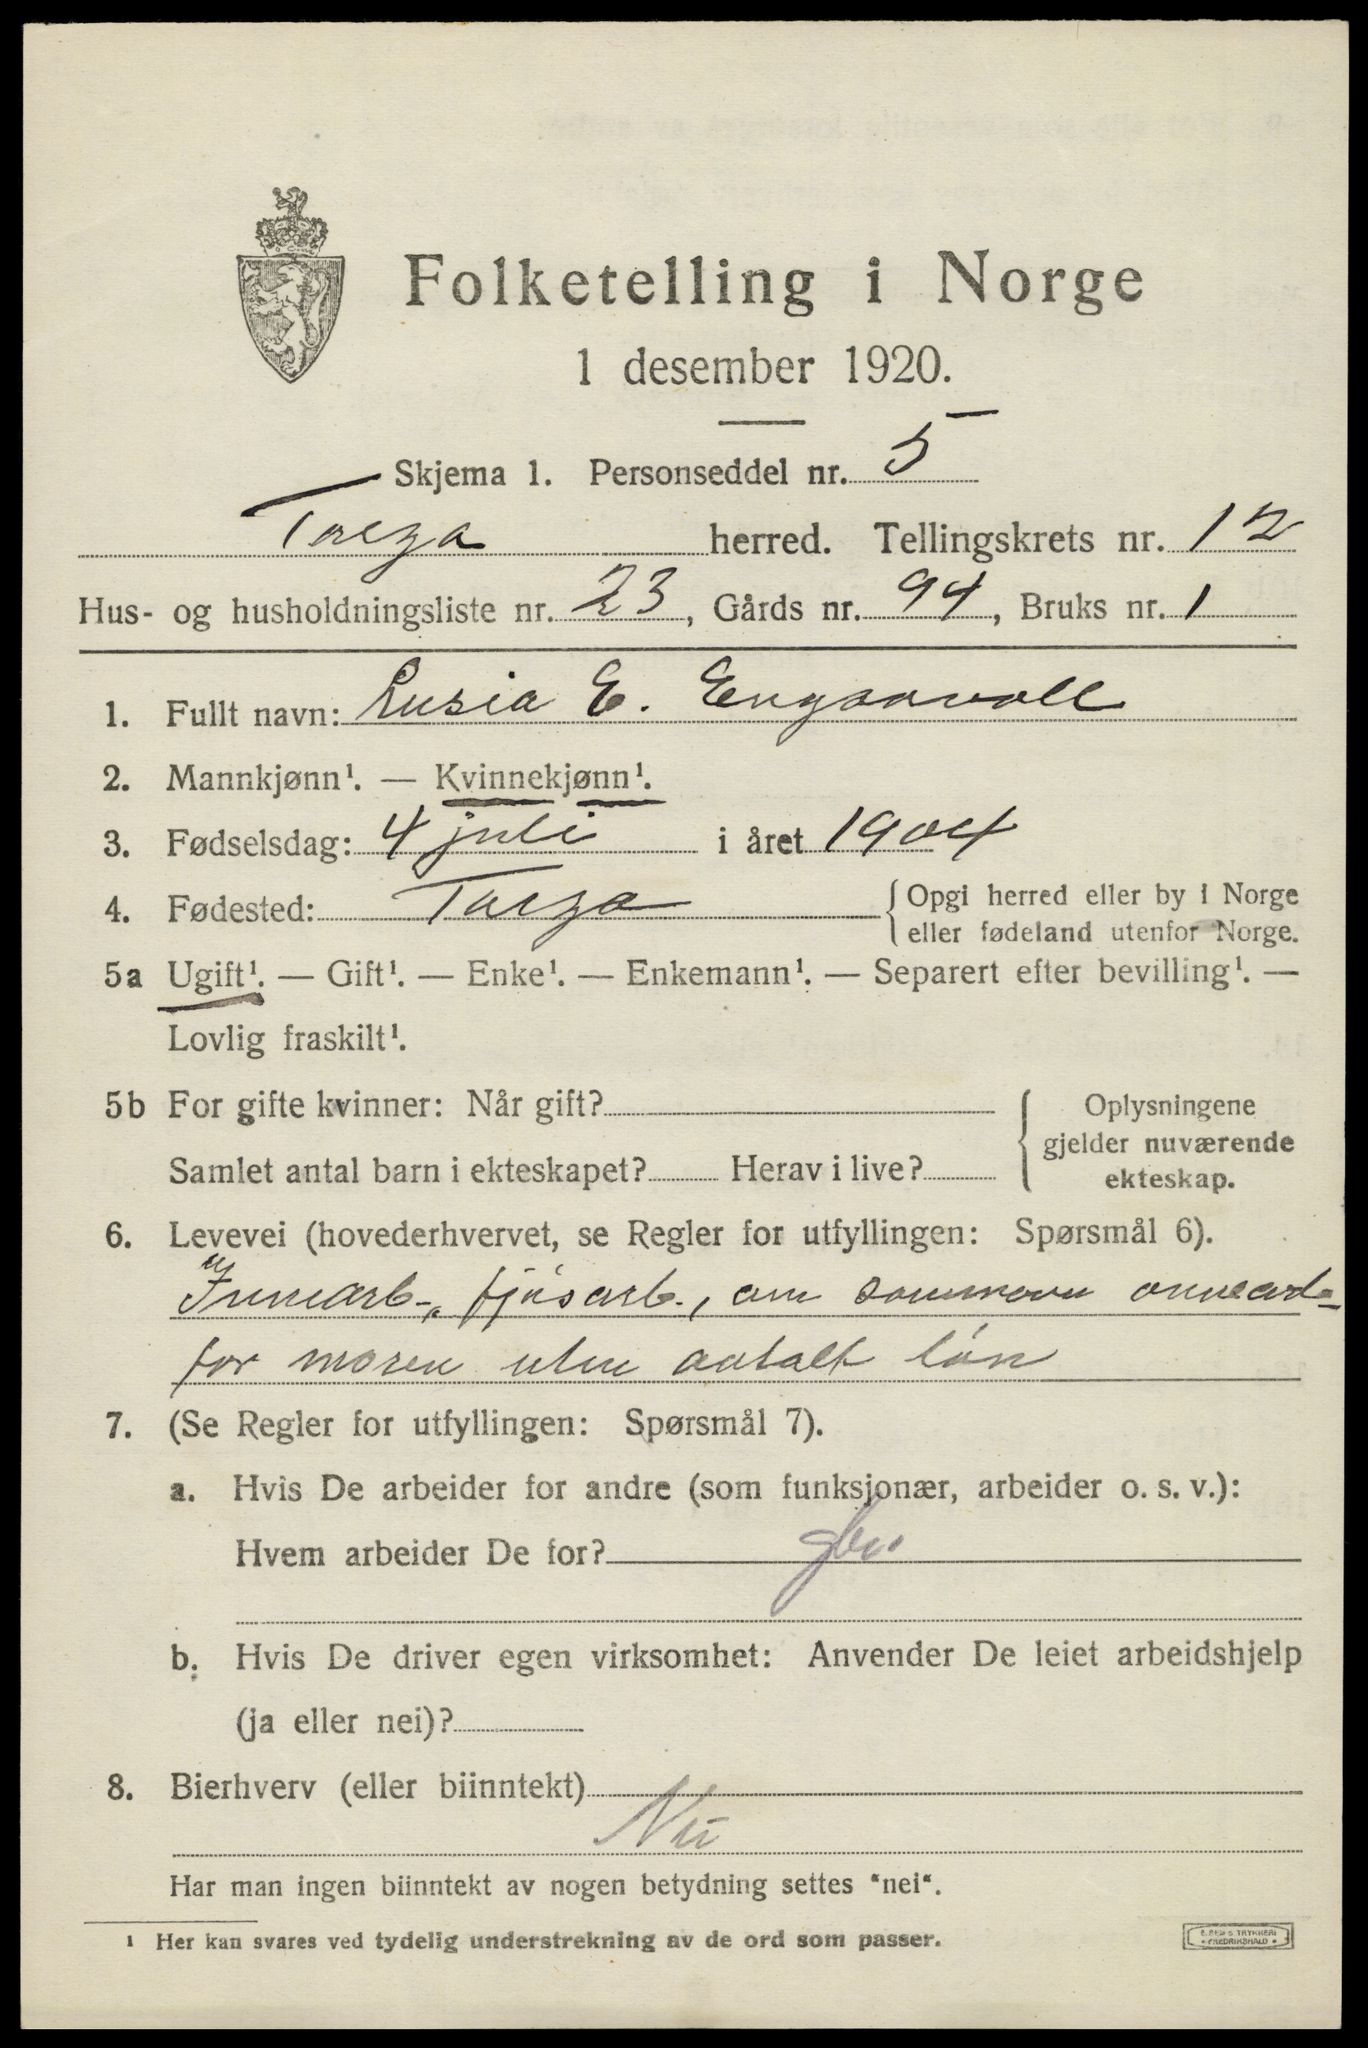 Folketelling i Norge
1 desember 1920.
Skjema 1. Personseddel nr. 5
Torga herred. Tellingskrets nr. 12
Hus- og husholdningsliste nr. 23, Gårds nr. 94, Bruks nr. 1
1. Fullt navn: Lusia E. Engsovoll
2. Mannkjønn¹. — Kvinnekjønn¹.
3. Fødselsdag: 4 juli i året 1904
4. Fødested: Torga {Opgi herred eller by i Norge
eller fødeland utenfor Norge.
5a Ugift¹. — Gift¹. — Enke¹. — Enkemann¹. — Separert efter bevilling¹. —
Lovlig fraskilt¹.
5b For gifte kvinner: Når gift? { Oplysningene
gjelder nuværende
Samlet antal barn i ekteskapet? Herav i live? ekteskap.
6. Levevei (hovederhvervet, se Regler for utfyllingen: Spørsmål 6).
Innearb., fjøsarb., om sommeren onnearb.
for moren uten avtalt løn
7. (Se Regler for utfyllingen: Spørsmål 7).
a. Hvis De arbeider for andre (som funksjonær, arbeider o. s. v.):
Hvem arbeider De for?
b. Hvis De driver egen virksomhet: Anvender De leiet arbeidshjelp
(ja eller nei)?
8. Bierhverv (eller biinntekt)
Nei
Har man ingen biinntekt av nogen betydning settes "nei".
¹ Her kan svares ved tydelig understrekning av de ord som passer.